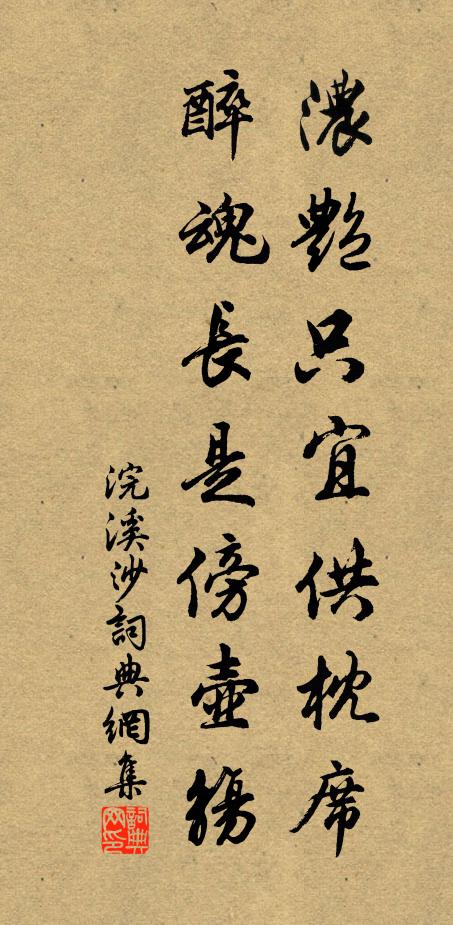 濃艷只宜供枕席
醉魂長是傍壺觴
浣溪沙詞典網集
詞典网印